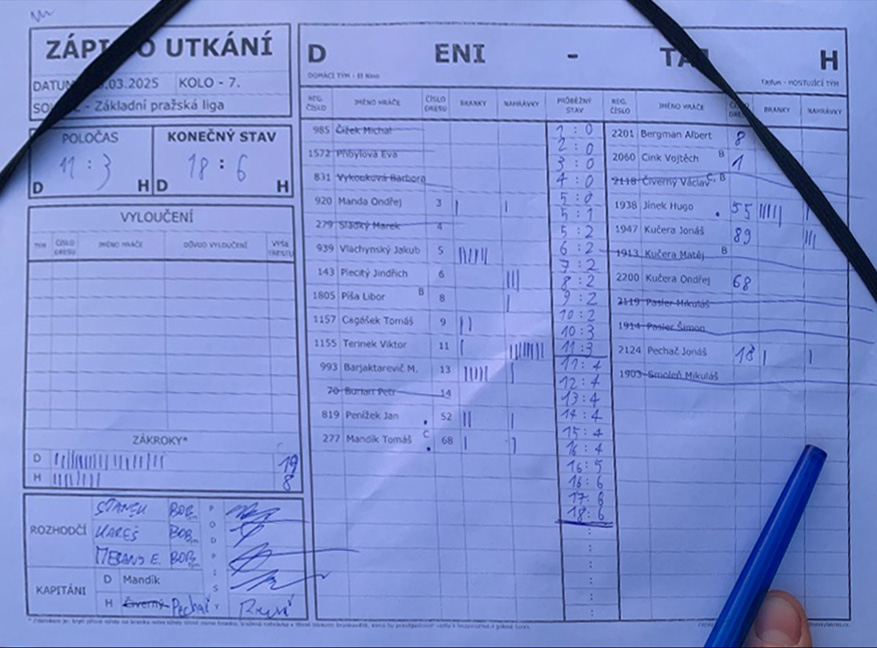 ZÁPI O UTKÁNÍ
DATUM .03.2025 KOLO - 7.
- Základní pražská liga
POLOČAS KONEČNÝ STAV
11 : 3 18 : 6
D H D H
VYLOUČENÍ
TÝM ČÍSLO DRESU JMÉNO HRÁČE DŮVOD VYLOUČENÍ VÝŠE TRESTU
ZÁKROKY*
D 19
H 8
ROZHODČÍ
STANEK
KAREŠ
KAPITÁNI D Mandík
H Čiverný Pechař
PODPIS
D ENI - TA H
DOMÁCÍ TÝM - HOSTUJÍCÍ TÝM
REG. ČÍSLO JMÉNO HRÁČE ČÍSLO DRESU BRANKY NAHRÁVKY PRŮBĚŽNÝ STAV REG. ČÍSLO JMÉNO HRÁČE BRANKY NAHRÁVKY
985 Čížek Michal
1572 Přibylová Eva
831 Vykouková Barbora
920 Manda Ondřej 3
279 Sladký Marek 4
939 Vlachynský Jakub 5
143 Plecitý Jindřich 6
1805 Píša Libor B 8
1157 Cagášek Tomáš 9
1155 Terinek Viktor 11
993 Barjaktarevič M. 13
70 Burian Petr 14
819 Penížek Jan 52
277 Mandík Tomáš C 68
1 : 0
2 : 0
3 : 0
4 : 0
5 : 0
5 : 1
5 : 2
6 : 2
7 : 2
8 : 2
9 : 2
10 : 2
10 : 3
11 : 3
11 : 4
12 : 4
13 : 4
14 : 4
15 : 4
16 : 4
16 : 5
16 : 6
17 : 6
18 : 6
2201 Bergman Albert 8
2060 Cink Vojtěch B 1
2118 Čiverný Václav C, B
1938 Jinek Hugo 55
1947 Kučera Jonáš 89
1913 Kučera Matěj B
2200 Kučera Ondřej 68
2119 Pasler Mikuláš
1914 Pasler Šimon
2124 Pechač Jonáš 18
1903 Smoleň Mikuláš